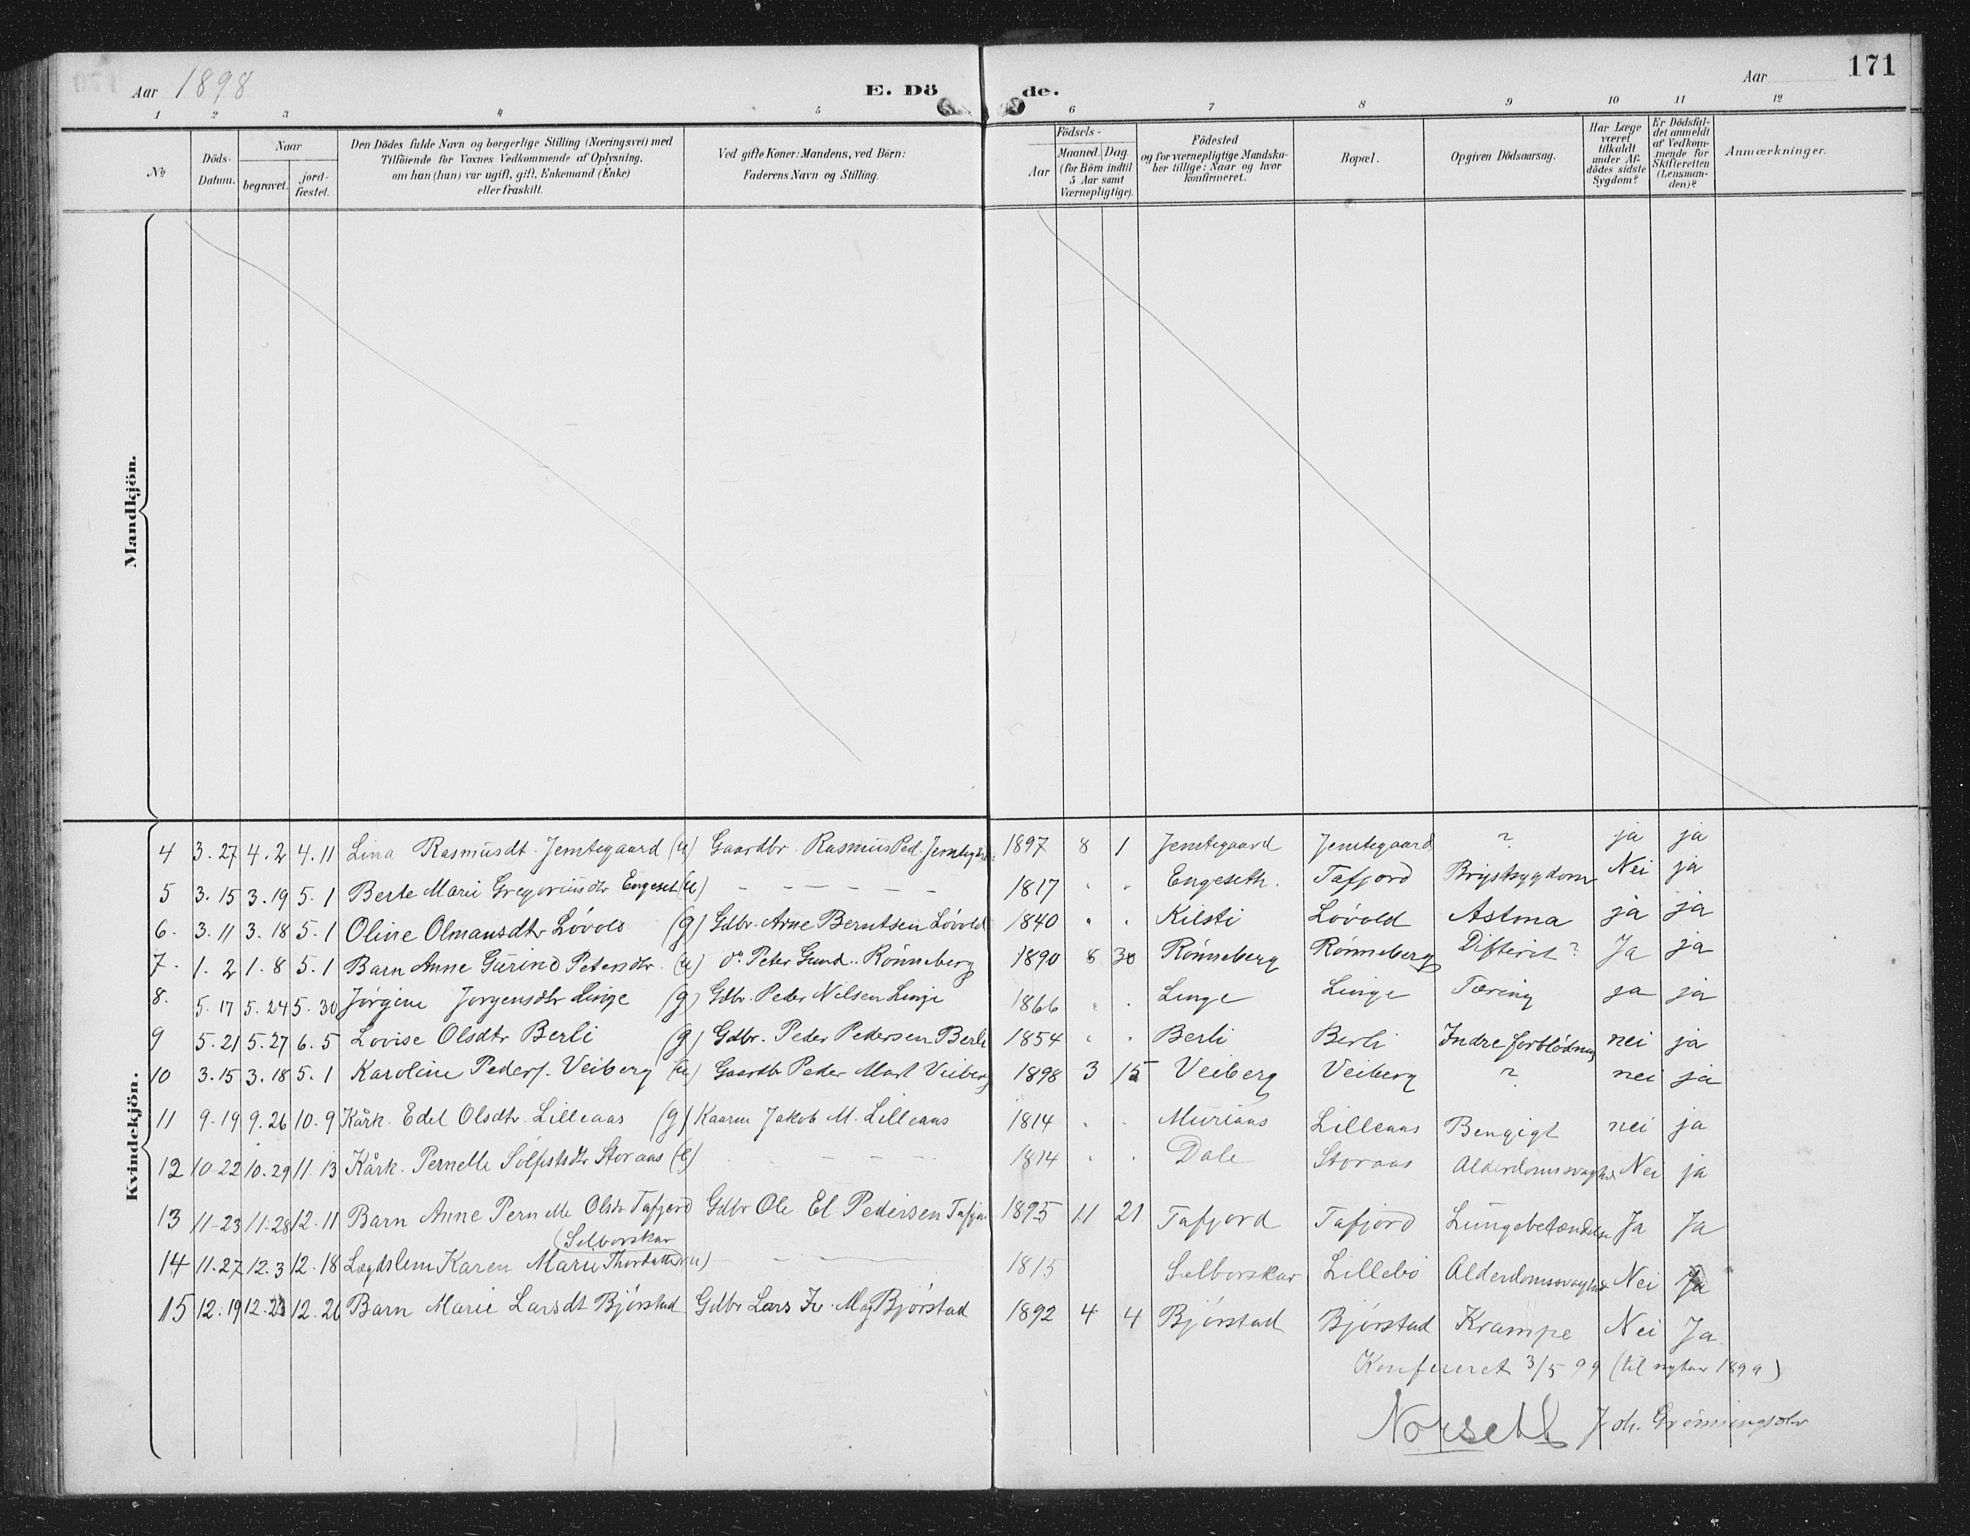 Aar 1898 E. Dö de. Aar 171
1 2 3 4 5 6 7 8 9 10 11 12
№ Döds-Datum. Naar begravet. jord-fæstet. Den Dödes fulde Navn og borgerlige Stilling (Næringsvei) med Tilföiende for Voxnes Vedkommende af Oplysning, om han (hun) var ugift, gift, Enkemand (Enke) eller fraskilt. Ved gifte Koner: Mandens, ved Börn: Faderens Navn og Stilling. Födsels- Aar Maaned. Dag (for Börn indtil 5 Aar samt Værnepligtige). Födested og for værnepligtige Mandskaber tillige: Naar og hvor konfirmeret. Bopæl. Opgiven Dödsaarsag. Har Læge været tilkaldt under Afdödes sidste Sygdom? Er Dödsfaldet anmeldt af Vedkommende for Skifteretten (Lensmanden)? Anmærkninger.
Mandkjön.
Kvindekjön.
4 3.27 4.2 4.11 Lina Rasmusdt. Jemtegaard (u) Gaardbr. Rasmus Ped. 1897 8 1 Jemtegaard Jemtegaard ? ja ja
5 3.15 3.19 5.1 Berte Marie Gregoriusdtr Engeset (u) - - - - - - 1817 " " Engeseth. Tafjord Brystsygdom Nei ja
6. 3.11 3.18 5.1 Oline Olmansdtr Lövold (g) Gdbr. Arne Berntsen Lövold 1840 " . Kilsti Lövold Astma ja ja
7. 1.2 1.8 5.1 Barn Anne Gurine Petersdtr. (u) do Peter Gund.. Rönneberg 1890 8 30 Rönneberg Rönneberg Difterit? Ja ja
8. 5.17 5.24 5.30 Jörgine Jorgensdtr Linge (g) Gdbr. Peder Nilsen Linge 1866 " . Linge Linge Tæring ja ja
9 5.21 5.27 6.5 Lovise Olsdtr Berli (g) Gdbr. Peder Pedersen Berli 1854 " . Berli Berli Indre forblödning nei ja
10 3.15 3.18 5.1 Karoline Peders. Veiberg (u) Gaardb Peder Mart Veiberg 1898 3 15 Veiberg Veiberg ? nei ja
11 9.19 9.26 10.9 Kårk. Edel Olsdtr. Lilleaas (g) Kaarm Jakob M. Lilleaas 1814 . . Muriaas Lilleaas nei ja
12 10.22 10.29 11.13 Kårk. Pernelle Storaas (e) - - - - 1814 . . Dale Storaas Alderdomssvaghed Nei ja
13 11-23 11-28 12.11 Barn Anne Pernelle Olsdr Tafjord Gdbr Ole El Pedersen Tafjor 1895 11 21 Tafjord Tafjord Lungebetændelse Ja Ja
(Selborskar
14 11.27 12.3 12.18 Lægdslem Karen Marie Thordatter (u) - - 1815 Selborskar Lillebö Alderdomssvaghed Nei Ja
15 12.19 12.23 12.26 Barn Marie Larsdt Bjørstad Gdbr Lars Fr. Mag Bjørstad 1892 4 4 Bjørstad Bjørstad Krampe Nei Ja.
Konfereret 3/5 99 (til nytaar 1899)
Norseth Joh. Grönningsæter